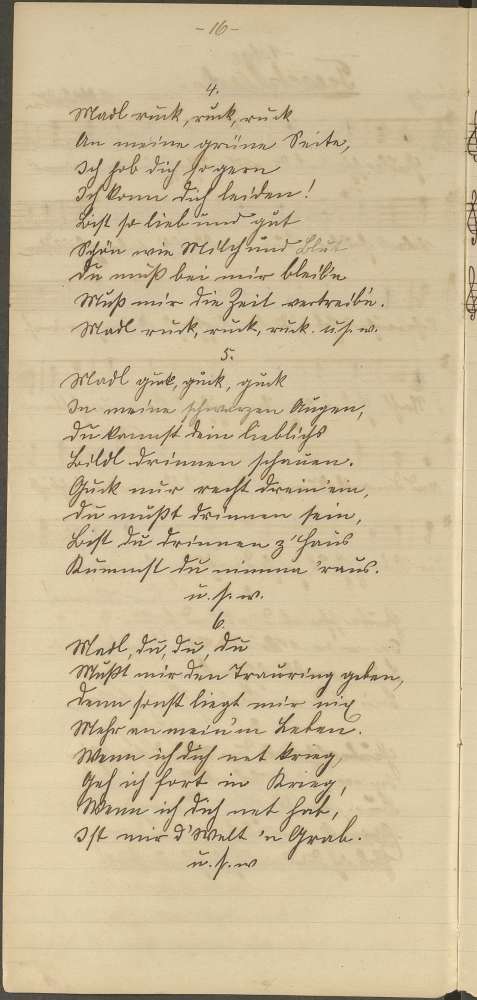 -16-
4.
Madl ruck, ruck, ruck
An meine grüne Seite,
Ich hab dich so gern
Ich kann dich leiden!
Bist so lieb und gut
Schön wie Milch und Blut
Du muß bei mir bleib'n
Muß mir die Zeit vertreib'n.
Madl ruck, ruck, ruck. u.s.w.
5.
Madl guck, guck, guck
In meine schwarzen Augen,
Du kannst dein lieblichs
Bildl drinnen schauen.
Guck nur recht drein ein,
Du mußt drinnen sein,
Bist du drinnen z'Haus
Kummst du nimma 'raus.
u.s.w.
6.
Madl, du, du, du
Mußt mir den Trauring geben,
Denn sonst liegt mir nix
Mehr an mein'm Leben.
Wenn ich dich net krieg,
Geh ich fort in Krieg,
Wenn ich dich net hab,
Ist mir d'Welt 'n Grab.
u.s.w